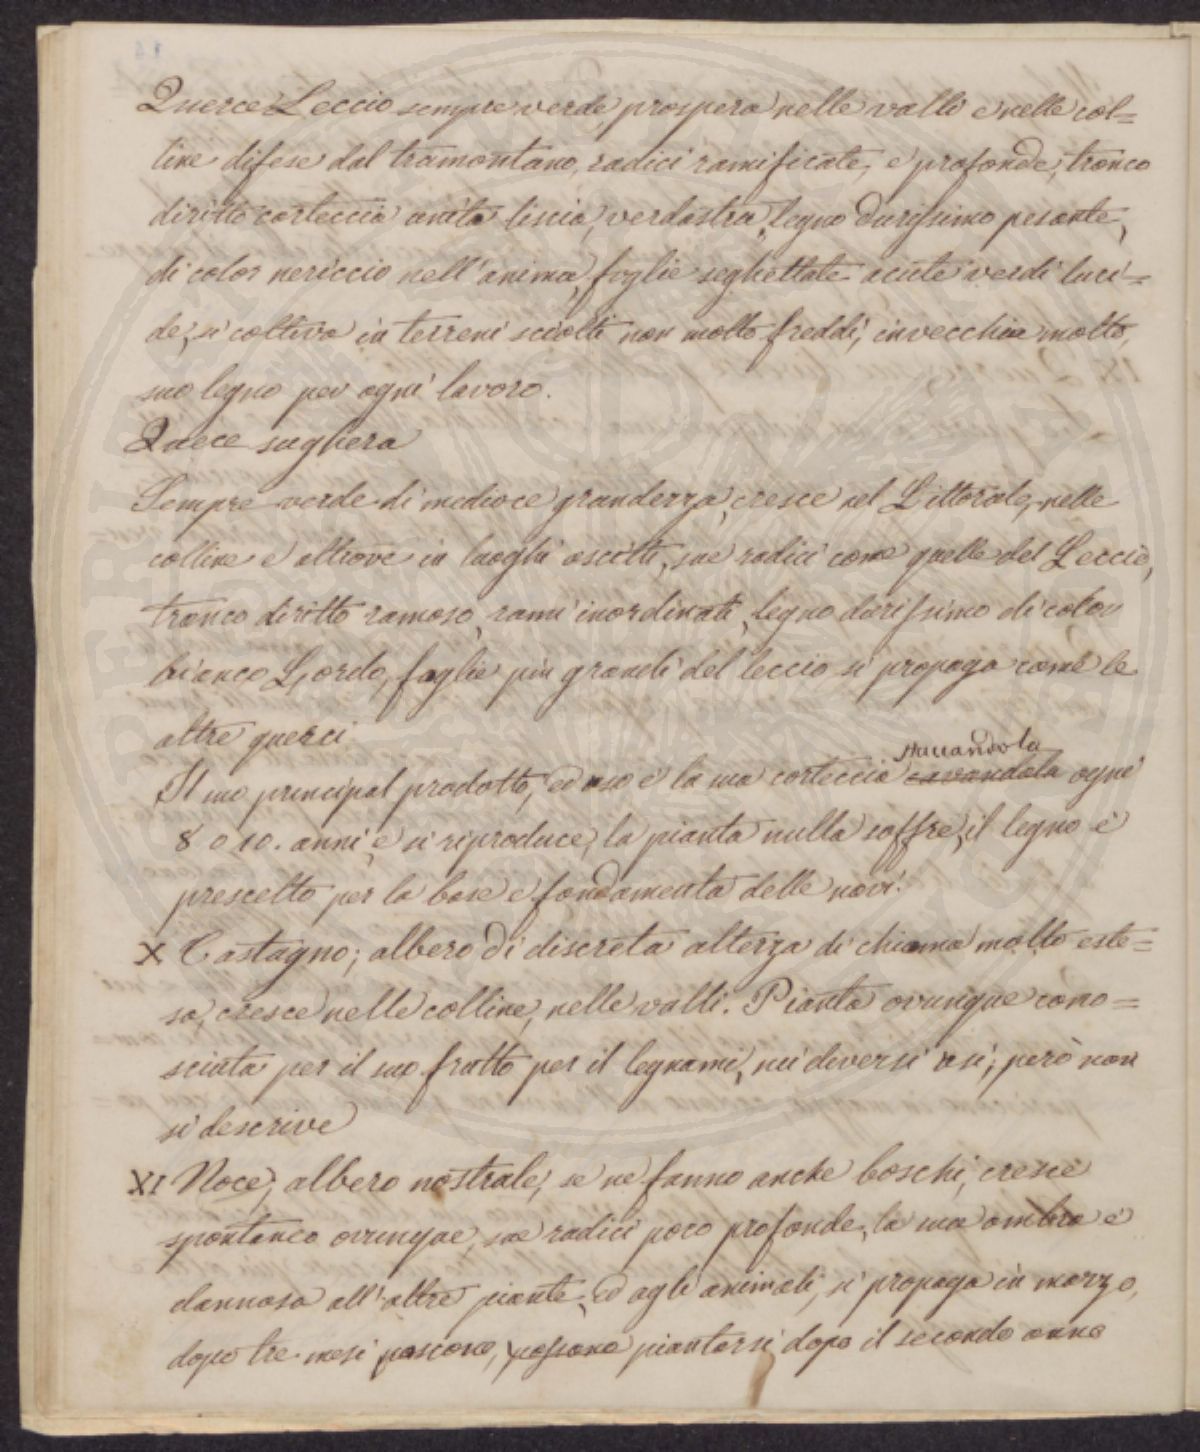 Querce Leccio sempre verde, prospera nelle valli e nelle col=
line difese dal tramontano, radici ramificate, e profonde, tronco
diritto corteccia unita liscia, verdastra, legno durissimo pesante,
di color nericcio nell'anima, foglie seghettate acute verdi luci=
de, si coltiva in terreni sciolti non molto freddi, invecchia molto,
suo legno per ogni lavoro.
Quece sughera
Sempre verde di medioce grandezza, cresce nel Littorale, nelle
colline e altrove in luoghi asciutti, sue radici come quelle del Leccio,
tronco diritto ramoso, rami inordinati, legno durissimo di color
bianco Lordo, foglie più grandi del leccio si propaga come le
altre querci
staccandola
Il suo principal prodotto, ed uso è la sua corteccia cavandola ogni
8 o 10. anni e si riproduce, la pianta nulla soffre, il legno è
prescelto per la base e fondamenta delle navi.
X Castagno; albero di discreta altezza di chioma molto este=
sa, cresce nelle colline, nelle valli. Pianta ovunque cono=
sciuta per il suo frutto per il legnami, nei diversi usi; però non
si descrive
XI Noce, albero nostrale, se ne fanno anche boschi, cresce
spontaneo ovunque, sue radici poco profonde, la sua ombra è
dannosa all'altre piante, ed agli animali, si propaga in marzo,
dopo tre mesi nascono, possono piantarsi dopo il secondo anno